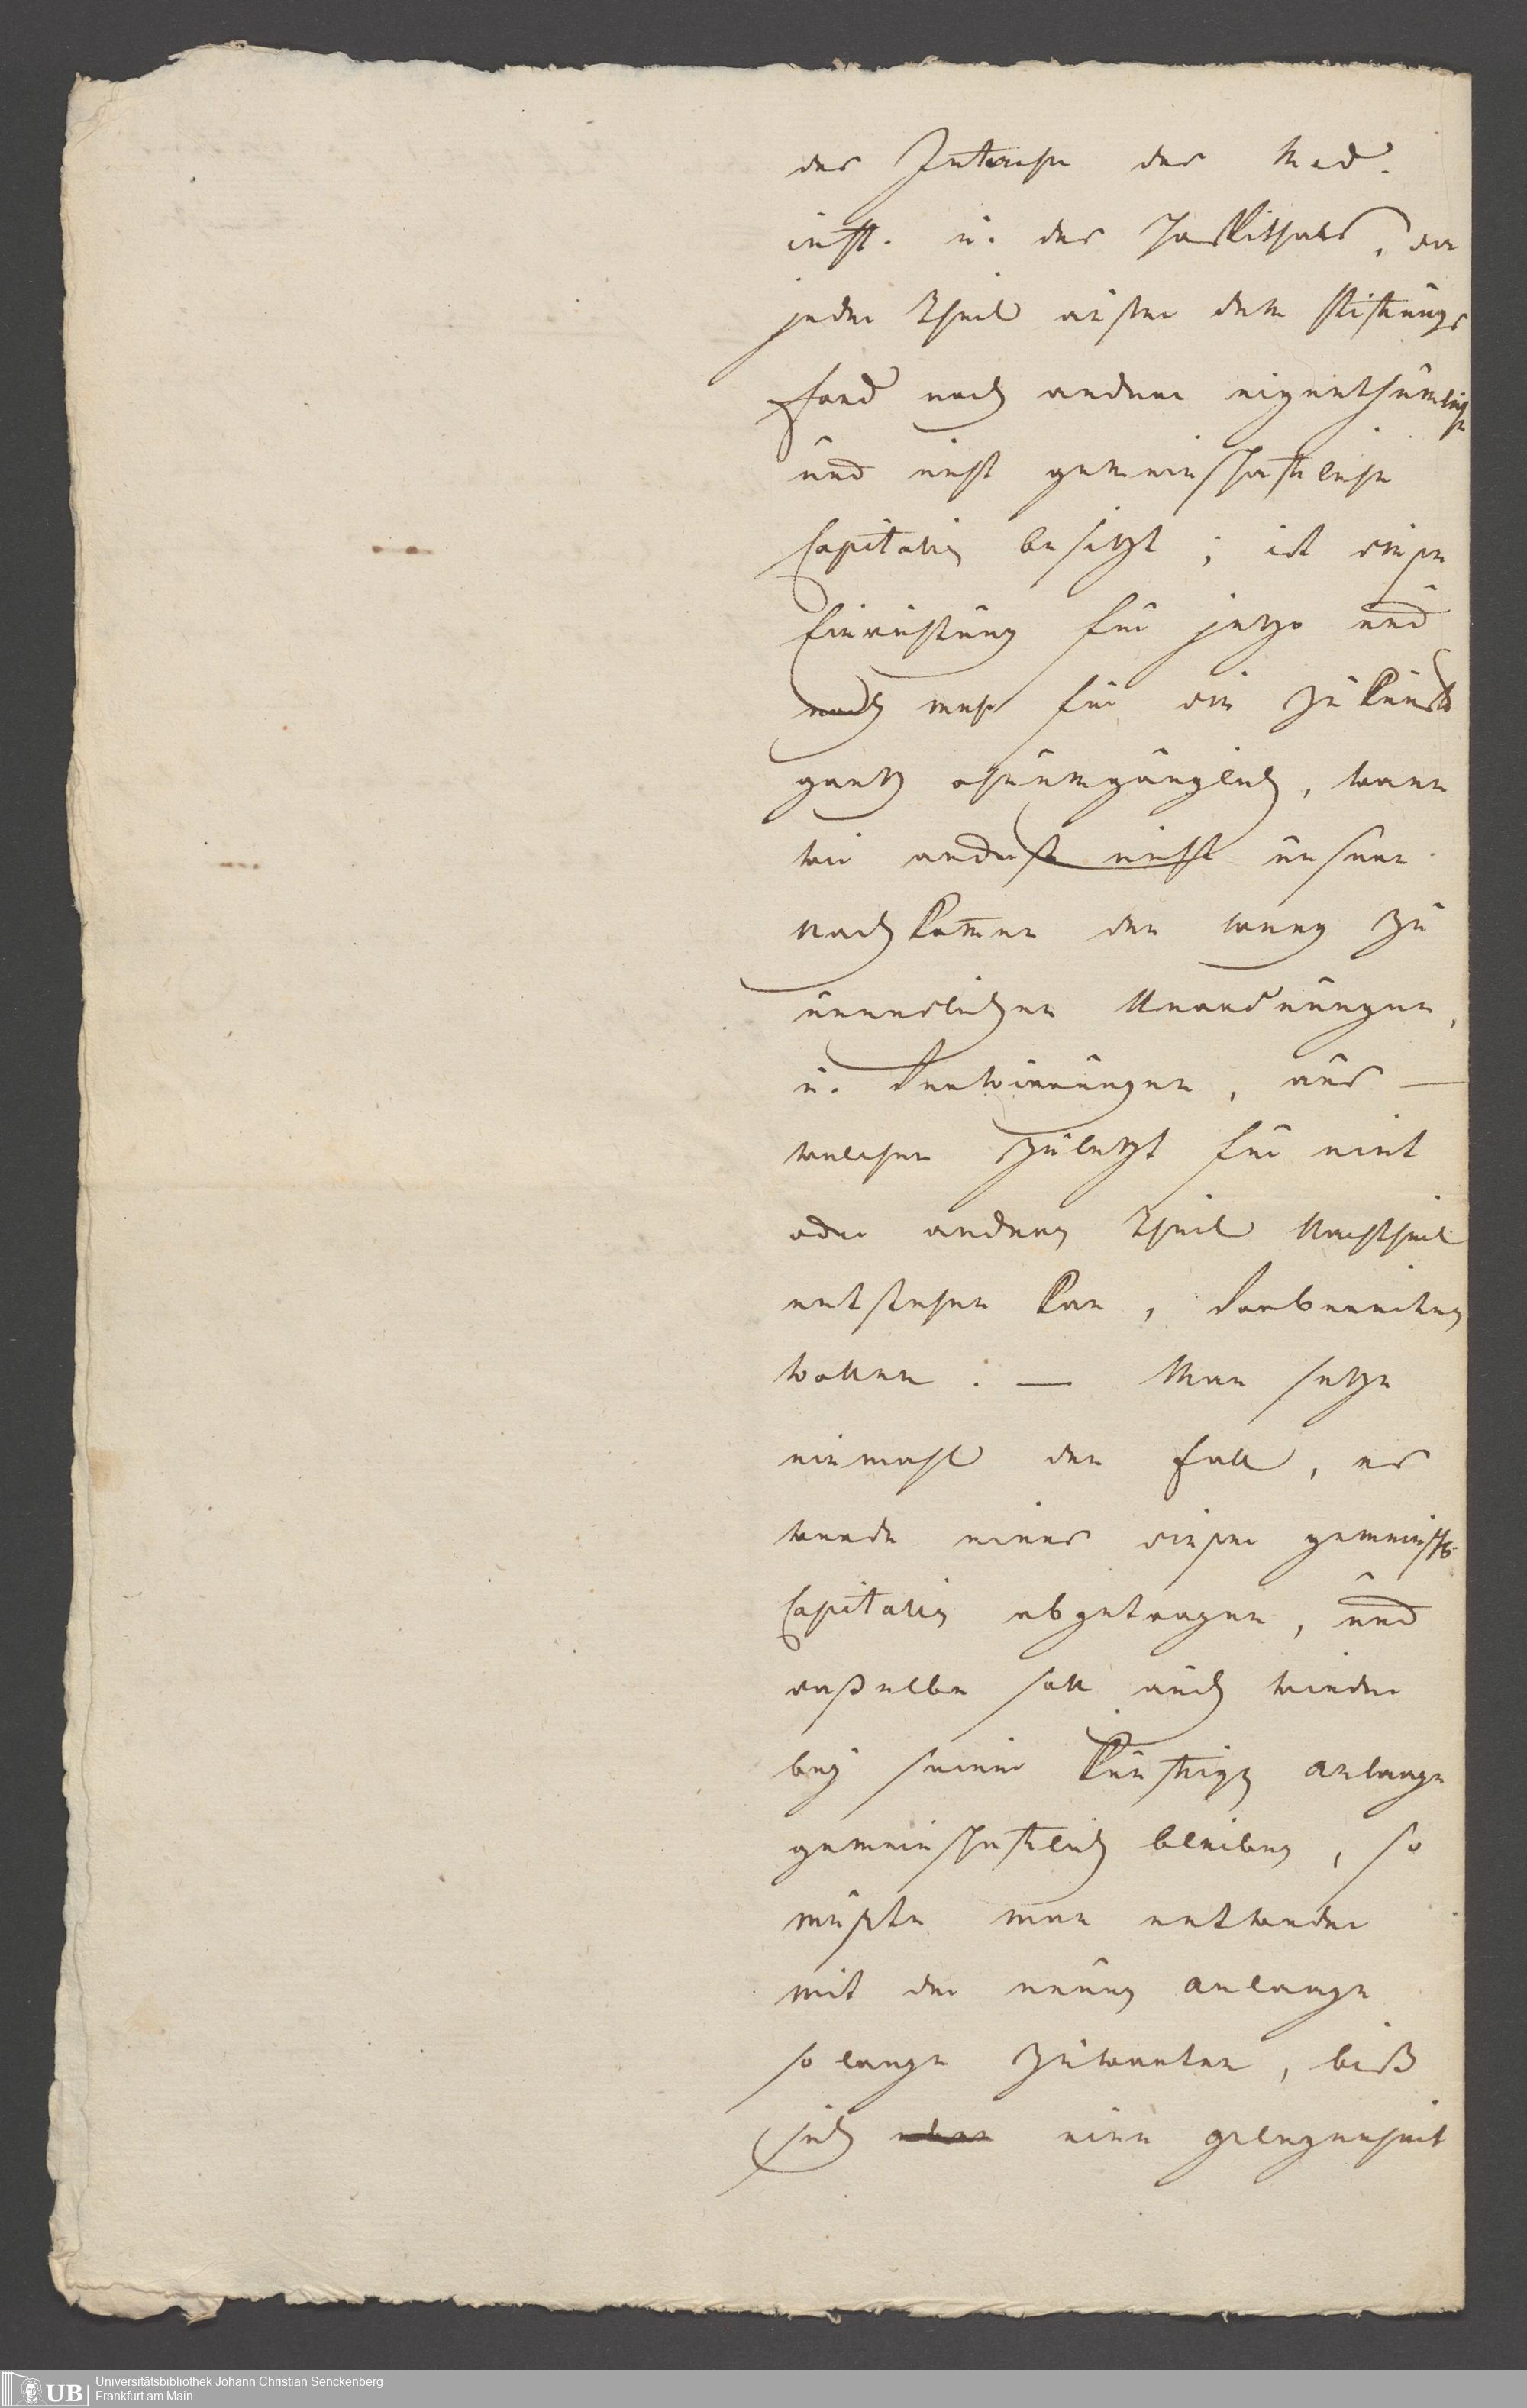 des Intereße des Med.
inst. u. des Hospithals, da
jeder Theil außer dem Stiftungs
Fond noch andere eigenthümliche
und nicht gemeinschaftliche
Capitalien besitzt; ist diese
Einrichtung für jetzo und
noch mehr für die Zukunft
gantz ohnumgänglich, wann
wir anderst nicht unsere
Nachkommen den weeg zu
unendlichen Unordnungen,
u. Verwirrungen, aus —
welchen zuletzt für eint
oder andern Theil Nachtheil
entstehen kan, vorbereiten
wollen. — Man setze
einmahl den Fall, es
werde eines dieser gemeinsch.
Capitalien abgetragen, und
daßelbe soll auch wieder
bey seiner künftigen anlaage
gemeinschaftlich bleiben, so
müßte man entweder
mit der neuen anlaage
so lange zuwarten, biß
sich eine gelegenheit
Universitätsbibliothek Johann Christian Senckenberg
Frankfurt am Main